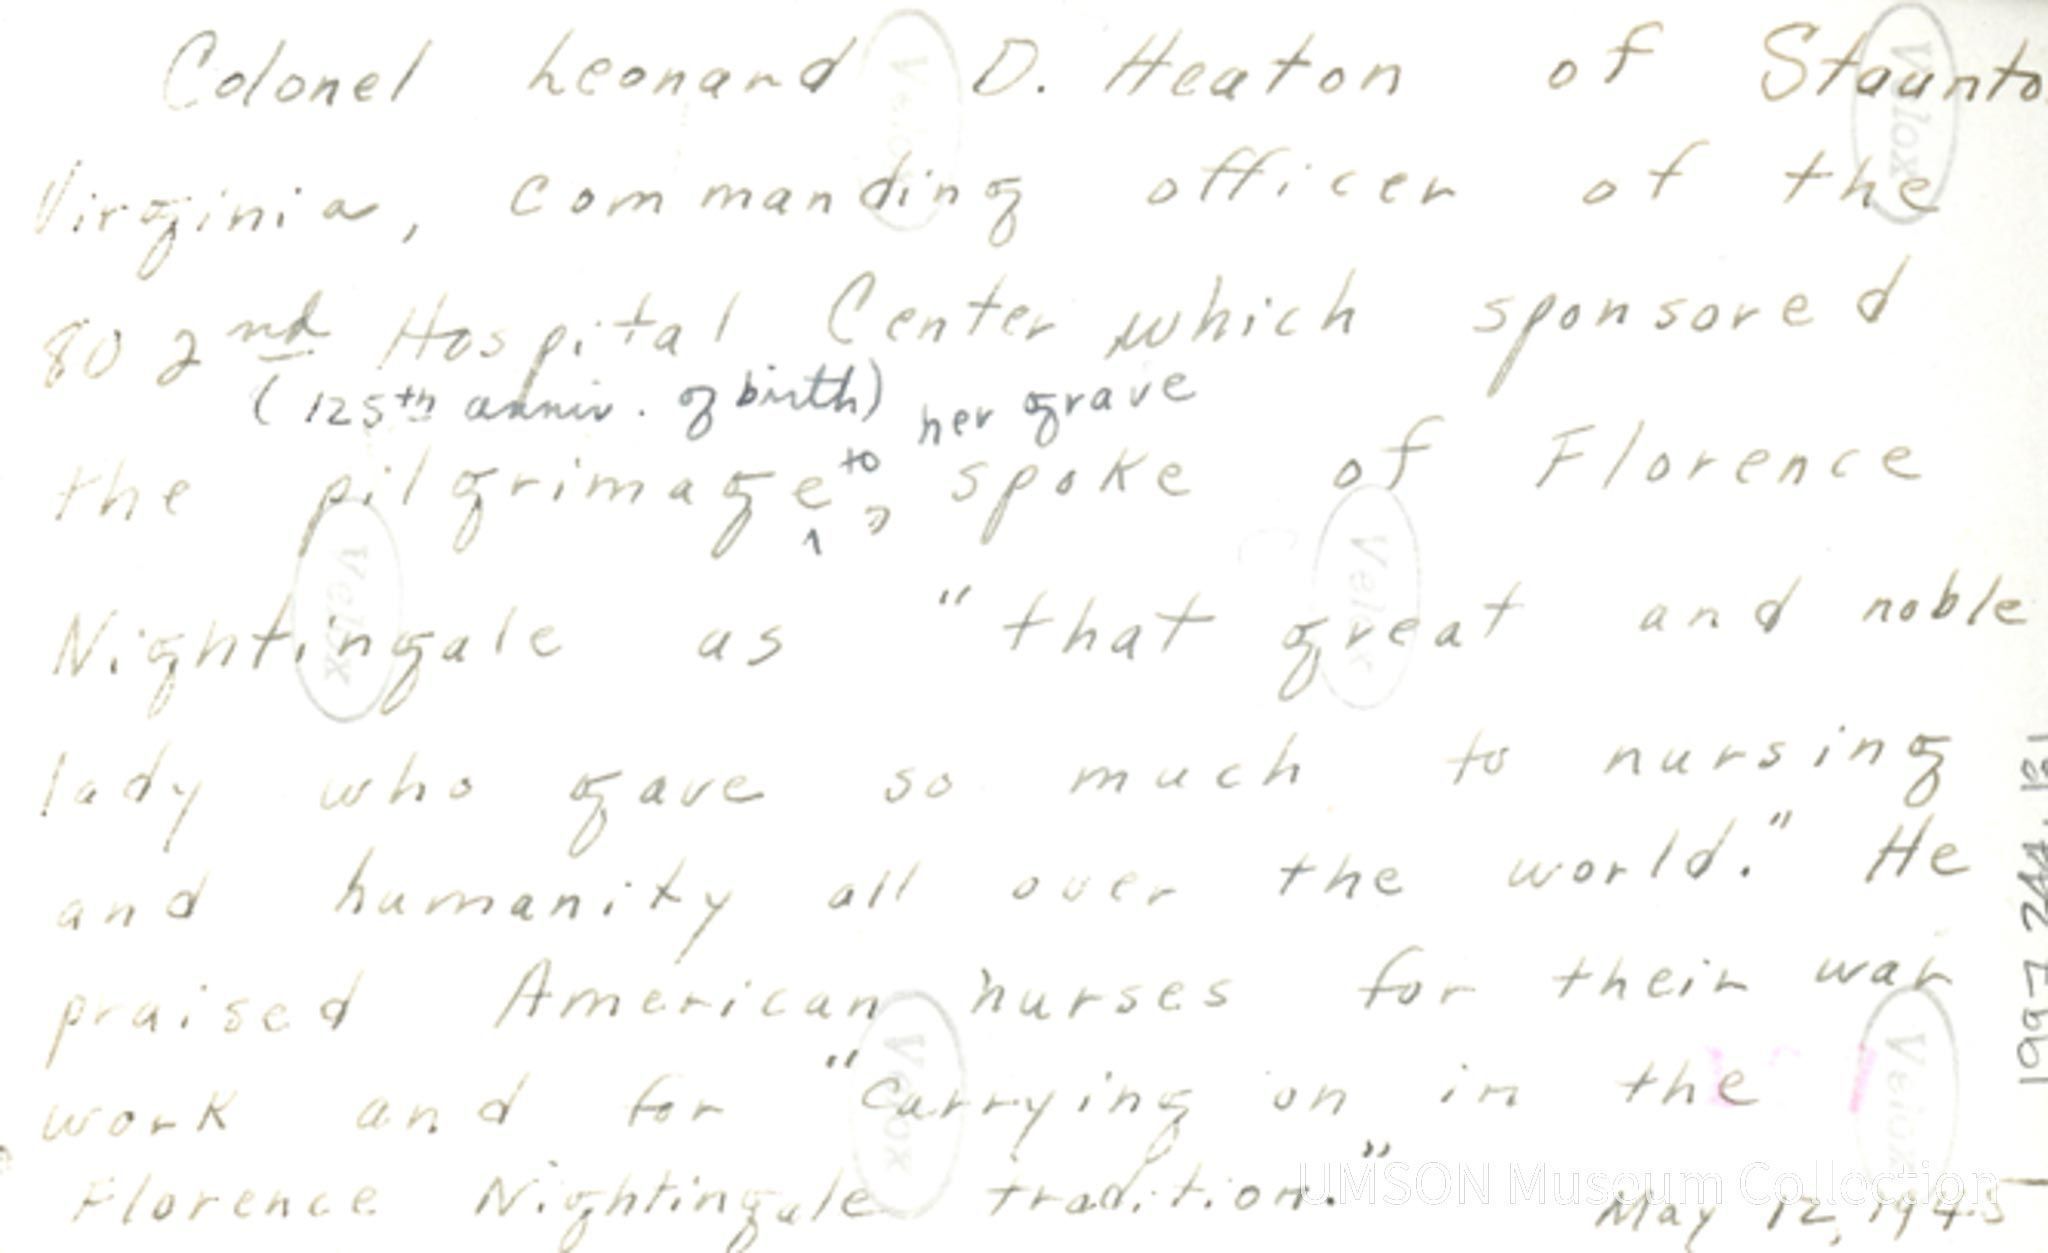 Colonel Leonard D. Heaton of Staunto
Virginia, commanding officer of the
802nd Hospital Center which sponsored
(125th anniv. of birth) her grave
the pilgrimage ^to, spoke of Florence
Nightingale as "that great and noble
lady who gave so much to nursing
and humanity all over the world." He
praised American nurses for their war
work and for "carrying on in the
Florence Nightingale tradition."
May 12, 1945
1997.244.131
Velox
Velox
Velox
Velox
Velox
Velox
UMSON Museum Collection